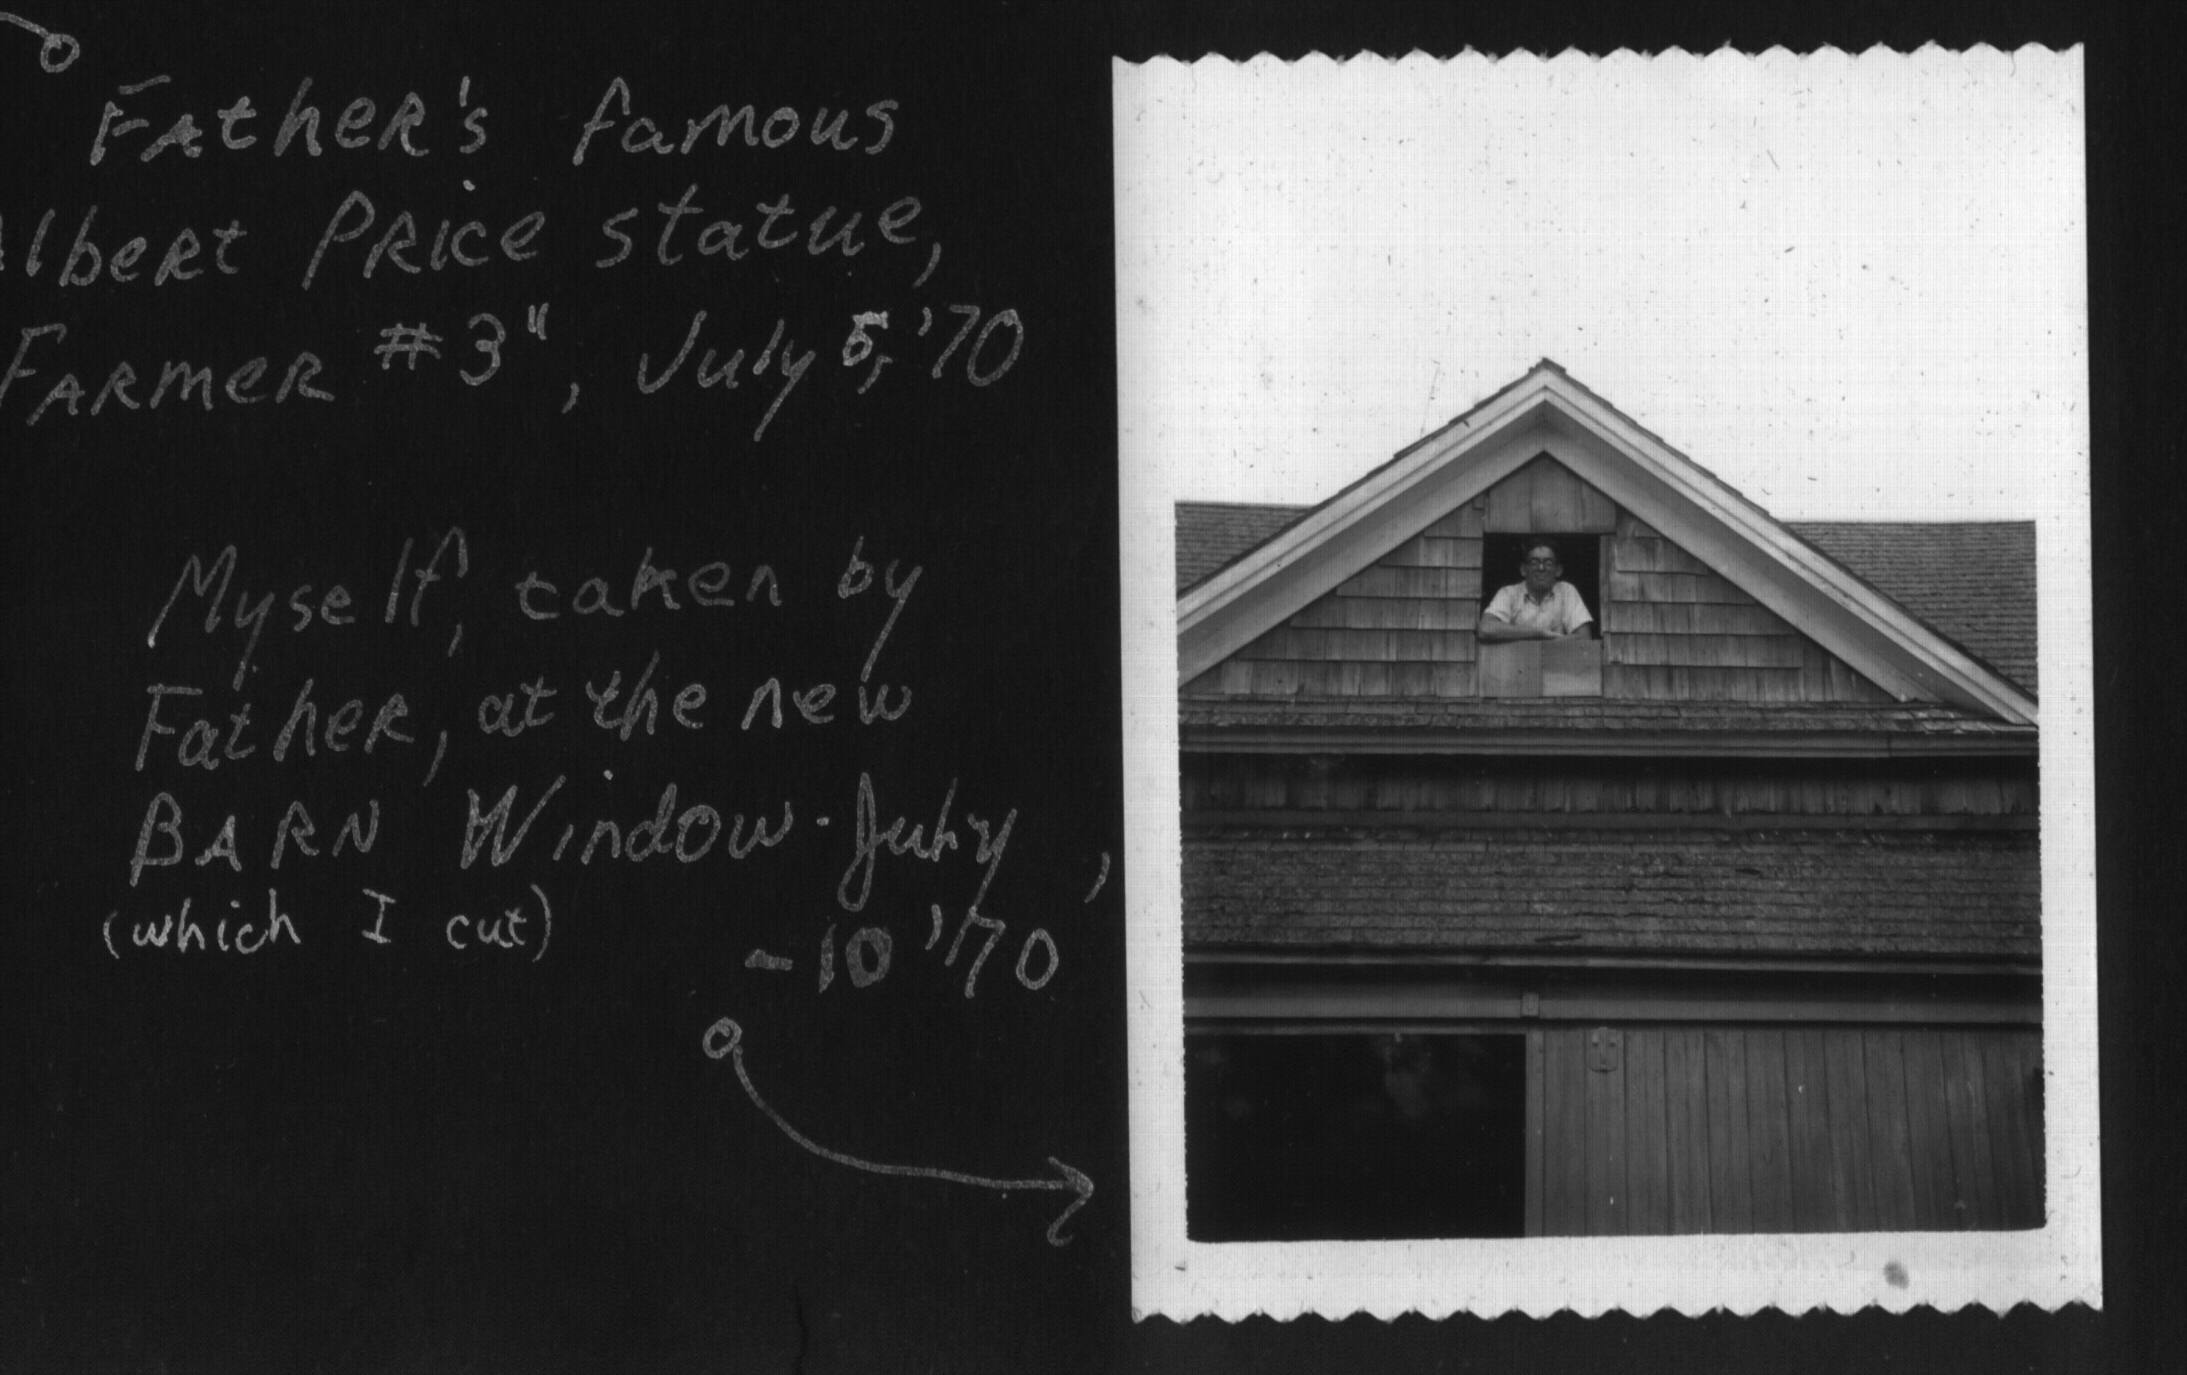 Father's famous
Albert Price statue,
Farmer #3", July 5, '70
Myself, taken by
Father, at the new
BARN Window - July
(which I cut)
-10 '70